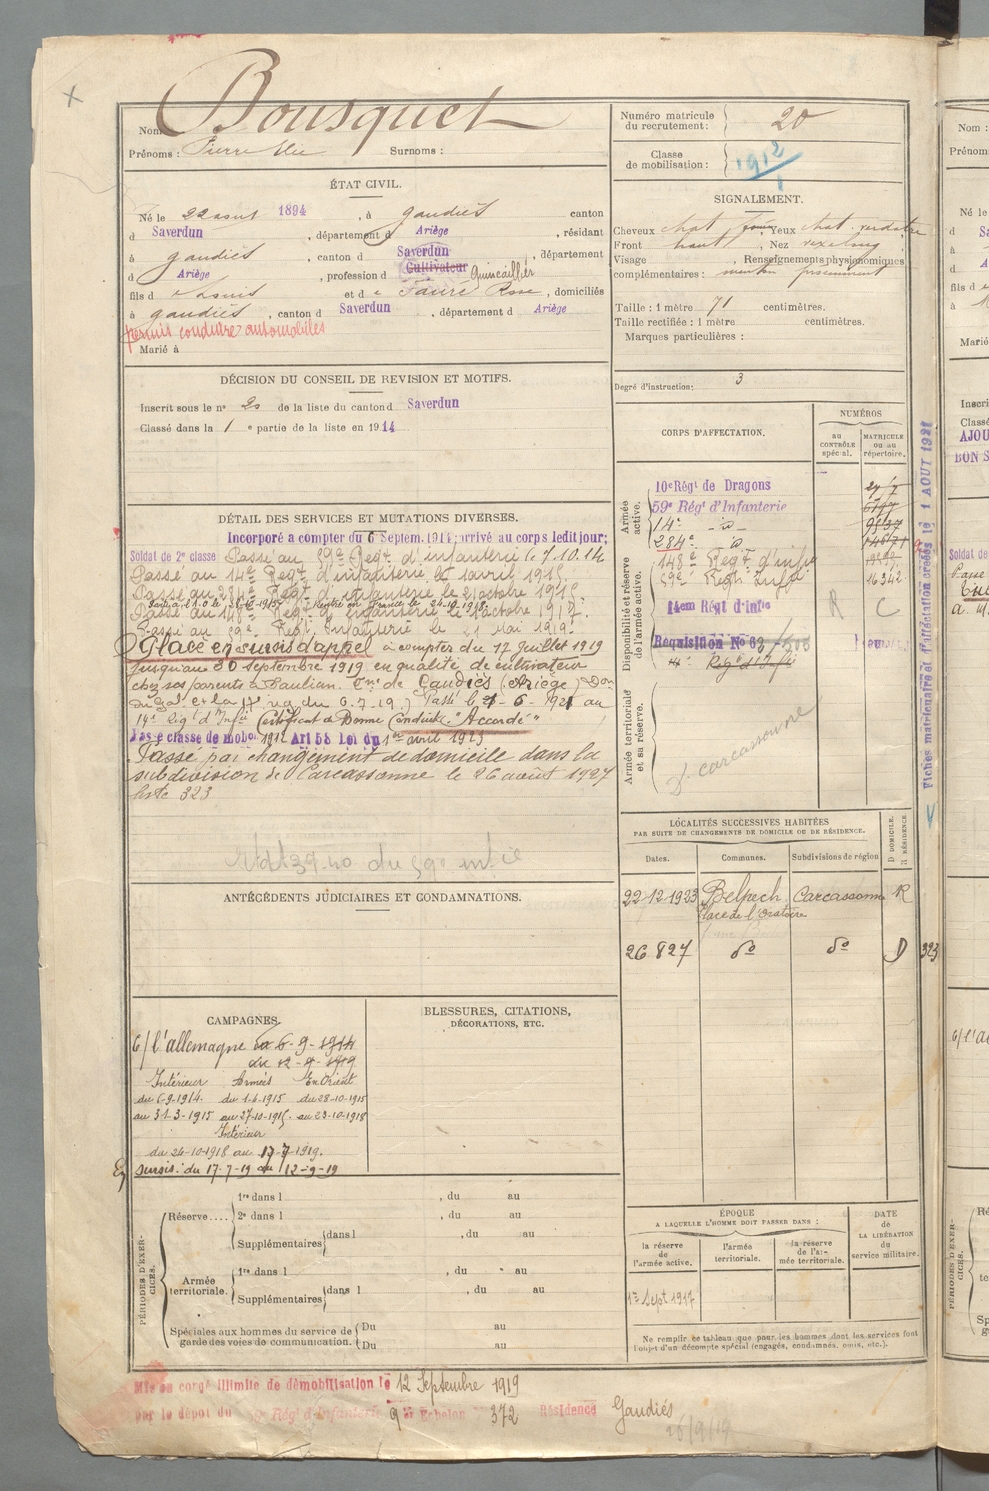 Nom: Bousquet
Prénoms: Pierre Elie Surnoms:
Numéro matricule du recrutement: 20
Classe de mobilisation: 1912
ÉTAT CIVIL.
Né le 22 aout 1894, à Gaudiès canton
d Saverdun, département d Ariège, résidant
à Gaudiès, canton d Saverdun, département
d Ariège, profession d Cultivateur Quincaillier
fils d Louis et d e Fauré Rose, domiciliés
à Gaudiès, canton d Saverdun, département d Ariège
permis conduire automobiles
Marié à
SIGNALEMENT.
Cheveux chat. foncé, Yeux chat. verdatre
Front haut, Nez rect. long
Visage, Renseignements physionomiques
complémentaires: menton proéminent
Taille: 1 mètre 71 centimètres.
Taille rectifiée: 1 mètre centimètres.
Marques particulières:
Degré d'instruction: 3
DÉCISION DU CONSEIL DE REVISION ET MOTIFS.
Inscrit sous le n° 20 de la liste du canton d Saverdun
Classé dans la 1 e partie de la liste en 1914
CORPS D'AFFECTATION.
NUMÉROS
au CONTRÔLE spécial.
MATRICULE ou au répertoire.
Armée active.
10e Régt de Dragons
59e Régt d'Infanterie
14e d°
284e d°
Disponibilité et réserve de l'armée active.
148e Regt d'infie
59e Regt Infie 16342
14em Régt d'infie R C
Réquisition No 63
14e Régt d'Infie
Armée territoriale et sa réserve.
Dt Carcassonne
Fiches matriculaire et d'affectation créées le 1 AOUT 1921
DÉTAIL DES SERVICES ET MUTATIONS DIVERSES.
Incorporé a compter du 6 Septem. 1914; arrivé au corps ledit jour;
Soldat de 2e classe Passé au 59e Regt d'infanterie le 7.10.14
Passé au 14e Regt d'infanterie le 1 avril 1915.
Passé au 284e Regt d'infanterie le 2 octobre 1915.
Parti à l'A.O. le 28-10-1915 Rentré en France le 24-10-1918
Passé au 148e Regt d'infanterie le octobre 1917.
Passé au 59e Regt Infanterie le 21 Mai 1919.
Placé en sursis d'appel à compter du 17 juillet 1919
jusqu'au 30 Septembre 1919, en qualité de cultivateur
chez ses parents à Paulian. Cne de Gaudiès (Ariège) Don
du Gal Ct la 17e rg du 6-7-19.) Passé le 1-6-1921 au
14e Régt d'Infie Certificat de Bonne Conduite "Accordé"
Passé classe de mobon 1912 Art 58 Loi du 1er avril 1923
Passé par changement de domicile dans la
subdivision de Carcassonne le 26 août 1927
liste 323
ANTÉCÉDENTS JUDICIAIRES ET CONDAMNATIONS.
LOCALITÉS SUCCESSIVES HABITÉES
PAR SUITE DE CHANGEMENTS DE DOMICILE OU DE RÉSIDENCE.
Dates. Communes. Subdivisions de région D DOMICILE. R RÉSIDENCE.
22-12-1923 Belpech Carcassonne R
Place de l'Oratoire
26 8 27 d° d° D 323
CAMPAGNES.
C/ l'allemagne du 6-9-1914
au 12-9-1919
Intérieur Armées En Orient
du 6-9-1914. du 1-4-1915 du 28-10-1915
au 31-3-1915 au 27-10-1915 au 23-10-1918
Intérieur
du 24-10-1918 au 17-7-1919.
En sursis: du 17-7-19 au 12-9-19
BLESSURES, CITATIONS,
DÉCORATIONS, ETC.
PÉRIODES D'EXERCICES.
Réserve....
1re dans l , du au
2e dans l , du au
Supplémentaires dans l , du au
Armée territoriale.
1re dans l , du au
Supplémentaires dans l , du au
Spéciales aux hommes du service de garde des voies de communication.
Du au
Du au
ÉPOQUE
A LAQUELLE L'HOMME DOIT PASSER DANS:
la réserve de l'armée active.
l'armée territoriale.
la réserve de l'armée territoriale.
DATE DE LA LIBÉRATION du service militaire.
1er Sept 1917
Ne remplir ce tableau que pour les hommes dont les services font
l'objet d'un décompte spécial (engagés, condamnés, omis, etc.).
Mis en congé illimité de démobilisation le 12 Septembre 1919
par le dépôt du 59e Régt d'Infanterie 9e Echelon n° 372 Résidence Gaudiès
26/9/19